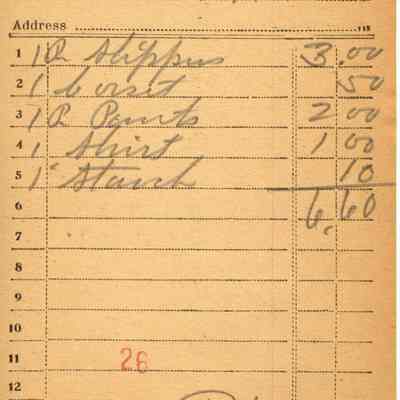 Address
1 1 P Slippers 3.00
2 1 Corset 50
3 1 P Pants 2 00
4 1 Shirt 1 00
5 1 Starch 10
6 6.60
7
8
9
10
11 26
12